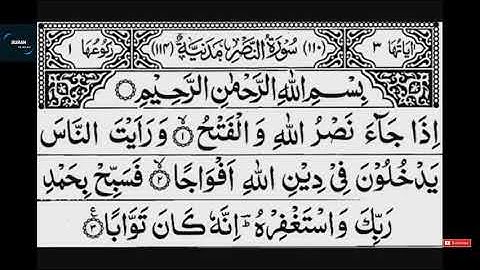 اٰیَاتُهَا ٣ (١١٠) سُوْرَةُ النَّصْرِ مَدَنِيَّةٌ (١١٤) رُكُوْعُهَا ١
بِسْمِ اللهِ الرَّحْمٰنِ الرَّحِيْمِ
اِذَا جَآءَ نَصْرُ اللهِ وَالْفَتْحُ ۙ﴿١﴾ وَرَاَيْتَ النَّاسَ
يَدْخُلُوْنَ فِيْ دِيْنِ اللهِ اَفْوَاجًا ۙ﴿٢﴾ فَسَبِّحْ بِحَمْدِ
رَبِّكَ وَاسْتَغْفِرْهُ ؕ اِنَّهٗ كَانَ تَوَّابًا ﴿٣﴾